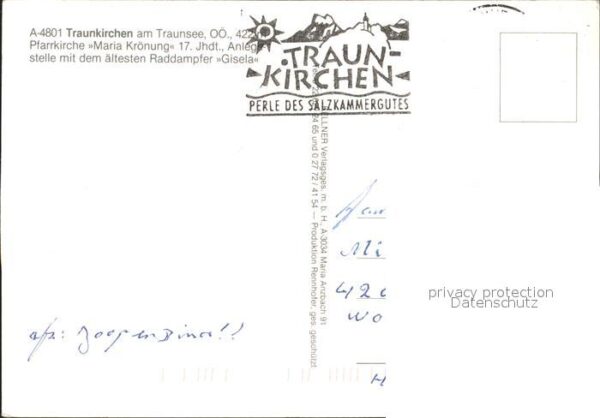 A-4801 Traunkirchen am Traunsee, OÖ., 422
Pfarrkirche »Maria Krönung« 17. Jhdt., Anlege-
stelle mit dem ältesten Raddampfer »Gisela«
TRAUN-
KIRCHEN
PERLE DES SALZKAMMERGUTES
LLNER Verlagsges. m. b. H., A-3034 Maria Anzbach 91
24 65 und 0 27 72 / 41 54 — Produktion Rennhofer, ges. geschützt
Mi
420
Wo
H
privacy protection
Datenschutz
afz: